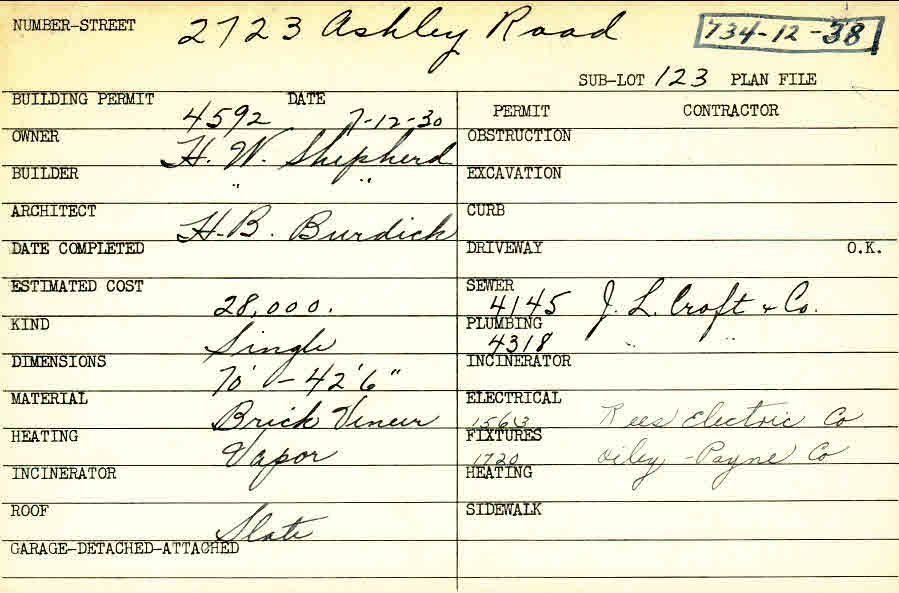 NUMBER-STREET 2723 Ashley Road 734-12-38
SUB-LOT 123 PLAN FILE
BUILDING PERMIT 4592 DATE 7-12-30 PERMIT CONTRACTOR
OWNER H. W. Shepherd OBSTRUCTION
BUILDER " " EXCAVATION
ARCHITECT H. B. Burdick CURB
DATE COMPLETED DRIVEWAY O.K.
ESTIMATED COST 28,000. SEWER 4145 J. L. Croft & Co.
KIND Single PLUMBING 4318 " "
DIMENSIONS 70' - 42'6" INCINERATOR
MATERIAL Brick Veneer ELECTRICAL 1563 Rees Electric Co
HEATING Vapor FIXTURES 1720 -Payne Co
INCINERATOR HEATING
ROOF Slate SIDEWALK
GARAGE-DETACHED-ATTACHED